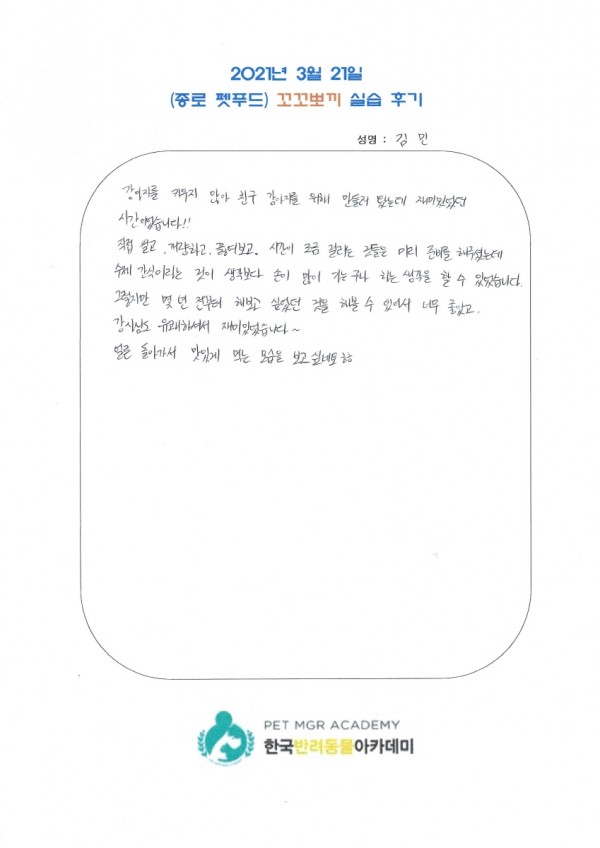 2021년 3월 21일
(종로 펫푸드) 꼬꼬뽀끼 실습 후기
성명 : 김 민
강아지를 키우지 않아 친구 강아지를 위해 만들러 왔는데 재미있었던
시간이었습니다!!
직접 썰고, 계량하고, 끓여보고. 시간이 조금 걸리는 것들은 미리 준비를 해주셨는데
수제 간식이라는 것이 생각보다 손이 많이 가는구나 하는 생각을 할 수 있었습니다.
그렇지만 몇 년 전부터 해보고 싶었던 것을 해볼 수 있어서 너무 좋았고.
강사님도 유쾌하셔서 재미있었습니다~
얼른 돌아가서 맛있게 먹는 모습을 보고 싶네요 ㅎㅎ
PET MGR ACADEMY
한국반려동물아카데미